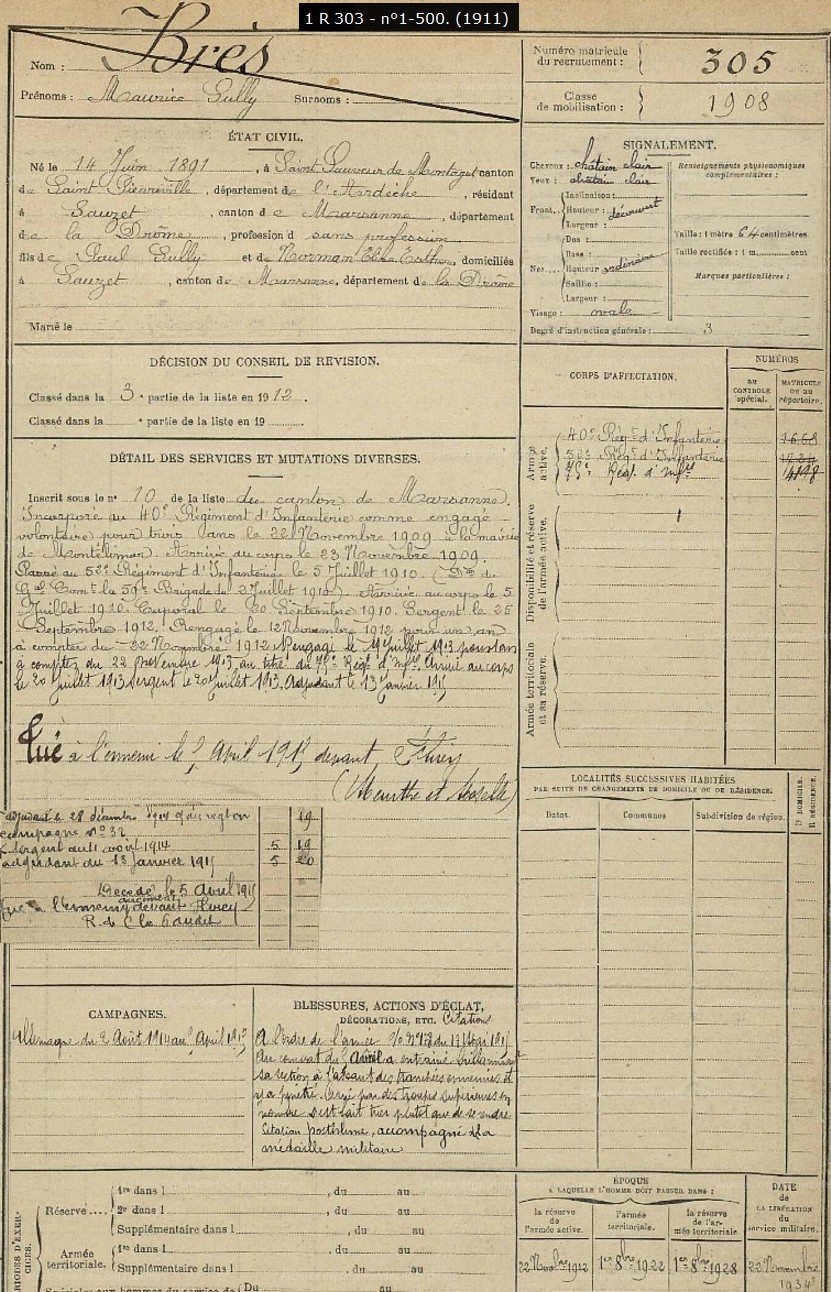 1 R 303 - n°1-500. (1911)
Nom : Brès
Prénoms : Maurice Sully Surnoms :
Numéro matricule du recrutement : 305
Classe de mobilisation : 1908
ÉTAT CIVIL.
Né le 14 Juin 1891, à Saint Sauveur de Montagut canton
de Saint Pierreville, département de l'Ardèche, résidant
à Sauzet, canton de Marsanne, département
de la Drôme, profession d sans profession
fils de Paul Sully et de Norman Elise Esther, domiciliés
à Sauzet, canton de Marsanne, département de la Drôme
Marié le
SIGNALEMENT.
Cheveux : châtain clair
Yeux : châtain clair
Front. Inclinaison :
Hauteur : découvert
Largeur :
Nez. Dos :
Base :
Hauteur ordinaire
Saillie :
Largeur :
Visage : ovale
Renseignements physionomiques complémentaires :
Taille : 1 mètre 64 centimètres.
Taille rectifiée : 1 m. cent
Marques particulières :
Degré d'instruction générale : 3
DÉCISION DU CONSEIL DE REVISION.
Classé dans la 3e partie de la liste en 1912.
Classé dans la e partie de la liste en 19
CORPS D'AFFECTATION.
NUMÉROS
AU CONTROLE spécial.
MATRICULE OU AU répertoire.
Armée active.
40e Régt d'Infanterie 1668
52e Régt d'Infanterie
75e Régt d'Infie 4198
Disponibilité et réserve de l'armée active.
Armée territoriale et sa réserve.
DÉTAIL DES SERVICES ET MUTATIONS DIVERSES.
Inscrit sous le n° 10 de la liste du canton de Marsanne.
Incorporé au 40e Régiment d'Infanterie comme engagé
volontaire pour trois ans le 22 Novembre 1909 à la mairie
de Montélimar. Arrivé au corps le 23 Novembre 1909.
Passé au 52e Régiment d'Infanterie le 5 Juillet 1910. (Don du
Gal Comt la 59e Brigade du 2 Juillet 1910). Arrivé au corps le 5
Juillet 1910. Caporal le 20 Septembre 1910. Sergent le 25
Septembre 1912. Rengagé le 12 Novembre 1912 pour un an
à compter du 22 Novembre 1912. Rengagé le 19 Juillet 1913 pour 1 ans
à compter du 22 novembre 1913, au titre du 75e Régt d'Infie. Arrivé au corps
le 20 Juillet 1913 Sergent le 20 Juillet 1913. Adjudant le 13 Janvier 1915
Tué à l'ennemi le 5 avril 1915 devant Flirey
(Meurthe et Moselle)
adjudant le 28 décembre 1914
campagne n° 32
Sergent au 11 août 1914 5 19
adjudant du 13 janvier 1915 5 20
Décédé le 5 Avril 1915
Tué à l'ennemi devant Flirey
LOCALITÉS SUCCESSIVES HABITÉES
PAR SUITE DE CHANGEMENTS DE DOMICILE OU DE RÉSIDENCE.
Dates. Communes Subdivision de région.
D DOMICILE. R RÉSIDENCE.
CAMPAGNES.
Allemagne du 2 Août 1914 au 5 Avril 1915
BLESSURES, ACTIONS D'ÉCLAT,
DÉCORATIONS, ETC. Citations
A l'ordre de l'armée
Au combat du 5 avril a entrainé brillamment
sa section à l'assaut des tranchées ennemies et
y a pénétré. Cerné par des troupes supérieures en
nombre s'est fait tuer plutôt que de se rendre
Citation posthume, accompagné de la
médaille militaire
PÉRIODES D'EXERCICES.
Réserve.... 1re dans l , du au
2e dans l , du au
Supplémentaire dans l , du au
Armée territoriale. 1re dans l , du au
Supplémentaire dans l , du au
ÉPOQUE
À LAQUELLE L'HOMME DOIT PASSER DANS :
la réserve de l'armée active.
l'armée territoriale.
la réserve de l'armée territoriale.
DATE de LA LIBÉRATION du service militaire.
22 Novbre 1912
1er 8bre 1922
1er 8bre 1928
22 Novembre 1934